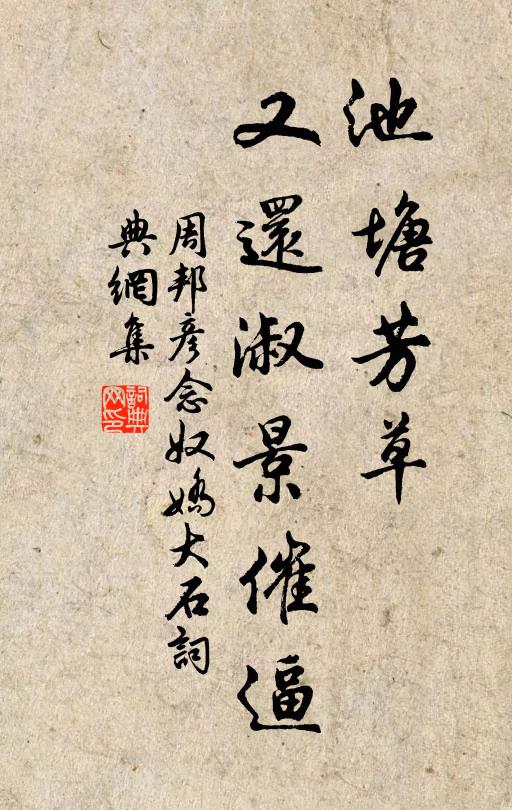 池塘芳草
又還淑景催逼
周邦彦念奴嬌大石詞
典網集
詞典
网印